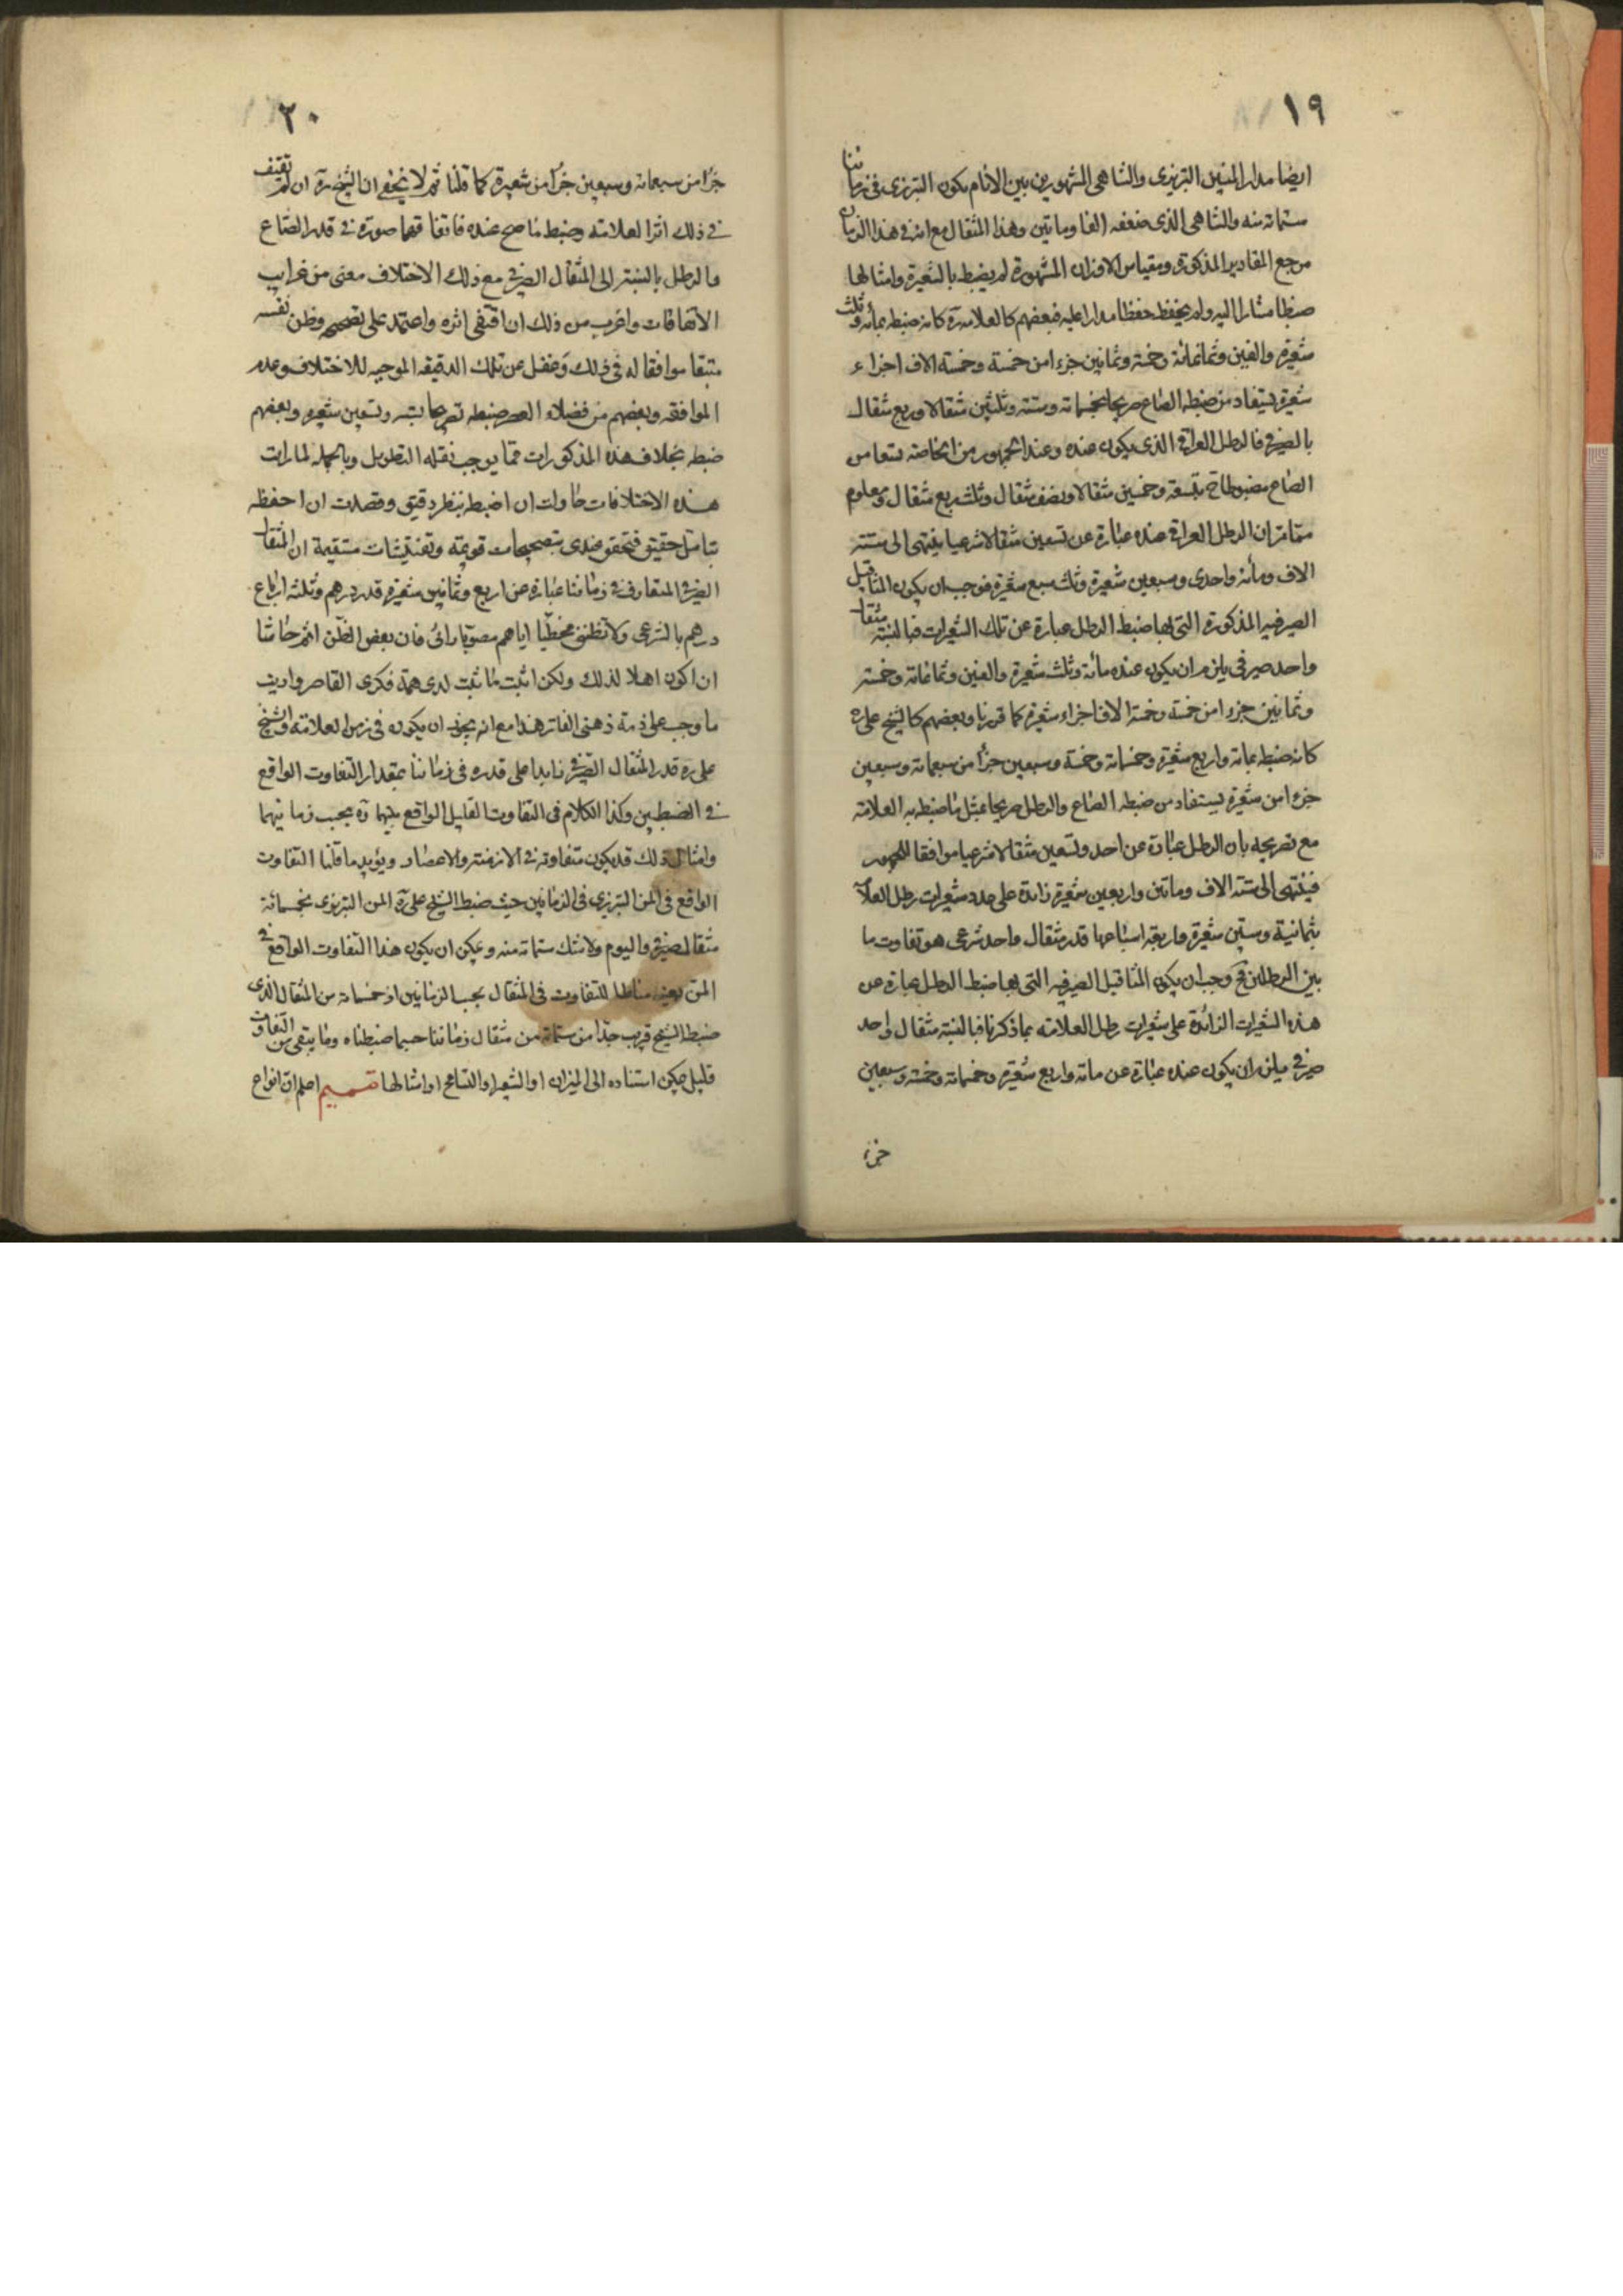 ١٩
ايضا مدار المنين التبريزى والشاهى المشهورين بين الانام يكون التبريزى فى زماننا
ستمائة منه والشاهى الذى ضعفه الفا ومأتين وهذا المثقال مع انه فى هذا الزمان
مرجع المقادير المذكورة ومقياس الاوزان المشهورة لم يضبط بالشعيرة وامثالها
ضبطا مشارا اليه ولم يحفظ حفظا مدارا عليه فبعضهم كالعلامة ره كانه ضبطه بمأة وثلث
شعيرة والفين وثمانمائة وخمسة وثمانين جزءا من خمسة وخمسة الاف اجزاء
شعيرة يستفاد من ضبطه الصاع صريحا بخمسمائة وستة وثلثين مثقالا وربع مثقال
بالصيرفى فالرطل العراقى الذى يكون عنده وعند الجمهور من الخاصة تسعا من
الصاع مضبوطا ح بتسعة وخمسين مثقالا ونصف مثقال وثلث ربع مثقال ومعلوم
مما مر ان الرطل العراقى عنده عبارة عن تسعين مثقالا شرعيا ينتهى الى ستة
الاف ومأة واحدى وسبعين شعيرة وثلث سبع شعيرة فوجب ان يكون المثاقيل
الصيرفية المذكورة التى بها ضبط الرطل عبارة عن تلك الشعيرات فبالنسبة مثقال
واحد صيرفى يلزم ان يكون عنده مائة وثلث شعيرة والفين وثمانمائة وخمسة
وثمانين جزءا من خمسة وخمسة الاف اجزاء شعيرة كما قررنا وبعضهم كالشيخ على ره
كانه ضبطه بمائة واربع شعيرة وخمسمائة وخمسة وسبعين جزأ من سبعمائة وسبعين
جزءا من شعيرة يستفاد من ضبطه الصاع والرطل صريحا بمثل ما ضبطه به العلامة
مع تصريحه بان الرطل عبارة عن احد وتسعين مثقالا شرعيا موافقا للجمهور
فينتهى الى ستة الاف ومأتين واربعين شعيرة زائدة على عدد شعيرات رطل العلامة
بثمانية وستين شعيرة واربعة اسباعها قدر مثقال واحد شرعى هو تفاوت ما
بين الرطلين فح وجب ان يكون المثاقيل الصيرفية التى بها ضبط الرطل عبارة عن
هذه الشعيرات الزائدة على شعيرات رطل العلامة بما ذكرنا فبالنسبة مثقال واحد
صيرفى يلزم ان يكون عنده عبارة عن مائة واربع شعيرة وخمسمائة وخمسة وسبعين
جزءا
٢٠
جزأ من سبعمائة وسبعين جزأ من شعيرة كما قلنا ثم لا يخفى ان الشيخ ره ان لم يقتف
فى ذلك اثر العلامة وضبط ما صح عنده فاتفاقهما صورة فى قدر الصاع
والرطل بالنسبة الى المثقال الصيرفى مع ذلك الاختلاف معنى من غرايب
الاتفاقات واغرب من ذلك ان اقتفى اثره واعتمد على تصحيحه وظن نفسه
متبعا موافقا له فى ذلك وغفل عن تلك الدقيقة الموجبة للاختلاف وعدم
الموافقة وبعضهم من فضلاء العصر ضبطه تصريحا بستة وتسعين شعيرة وبعضهم
ضبطه بخلاف هذه المذكورات مما يوجب نقله التطويل وبالجملة لما رايت
هذه الاختلافات حاولت ان اضبطه بنظر دقيق وقصدت ان احفظه
بتامل حقيق فتحقق عندى بتصحيحات قويمة وتفتيشات مستقيمة ان المثقال
الصيرفى المتعارف فى زماننا عبارة عن اربع وثمانين شعيرة قدر درهم وثلثة ارباع
درهم بالشرعى ولا تظننى مخطيا اياهم مصوبا رائى فان بعض الظن اثم حاشا
ان اكون اهلا لذلك ولكن اثبت ما ثبت لدى همة فكرى القاصر واديت
ما وجب على ذمة ذهنى الفاتر هذا مع انه يجوز ان يكون فى زمن العلامة والشيخ
على ره قدر المثقال الصيرفى زايدا على قدره فى زماننا بمقدار التفاوت الواقع
فى الضبطين وكذا الكلام فى التفاوت القليل الواقع بينهما ره بحسب زمانيهما
وامثال ذلك قد يكون متفاوتة فى الازمنة والاعصار ويؤيد ما قلنا التفاوت
الواقع فى المن التبريزى فى الزمانين حيث ضبط الشيخ على ره المن التبريزى بخمسمائة
مثقال صيرفى واليوم ولا شك ستمائة منه ويمكن ان يكون هذا التفاوت الواقع فى
المن بعينه مناطا للتفاوت فى المثقال بحسب الزمانين اذ خمسمائة من المثقال الذى
ضبطه الشيخ قريب جدا من ستمائة من مثقال زماننا حسبما ضبطناه وما يبقى من التفاوت
قليل يمكن استناده الى الميزان او الشعير او التسامح او امثالها تتميم اعلم ان انواع